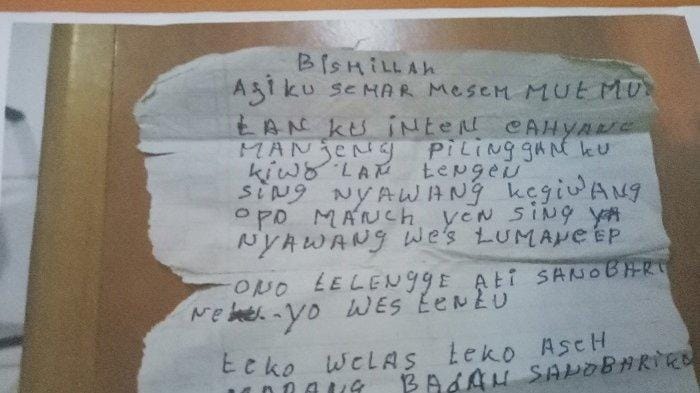 BISMILLAH
AJI KU SEMAR MESEM MUT MU
TAN KU INTEN CAHYANE
MANJENG PILINGGAN KU
KIWO LAN TENGEN
SING NYAWANG KEGIWANG
OPO MANEH YEN SING YA
NYAWANG WES TUMANCEP
ONO TELENGGE ATI SANOBARI
NE YO WES TENTU
TEKO WELAS TEKO ASEH
MARANG BADAN SANOBARIKU